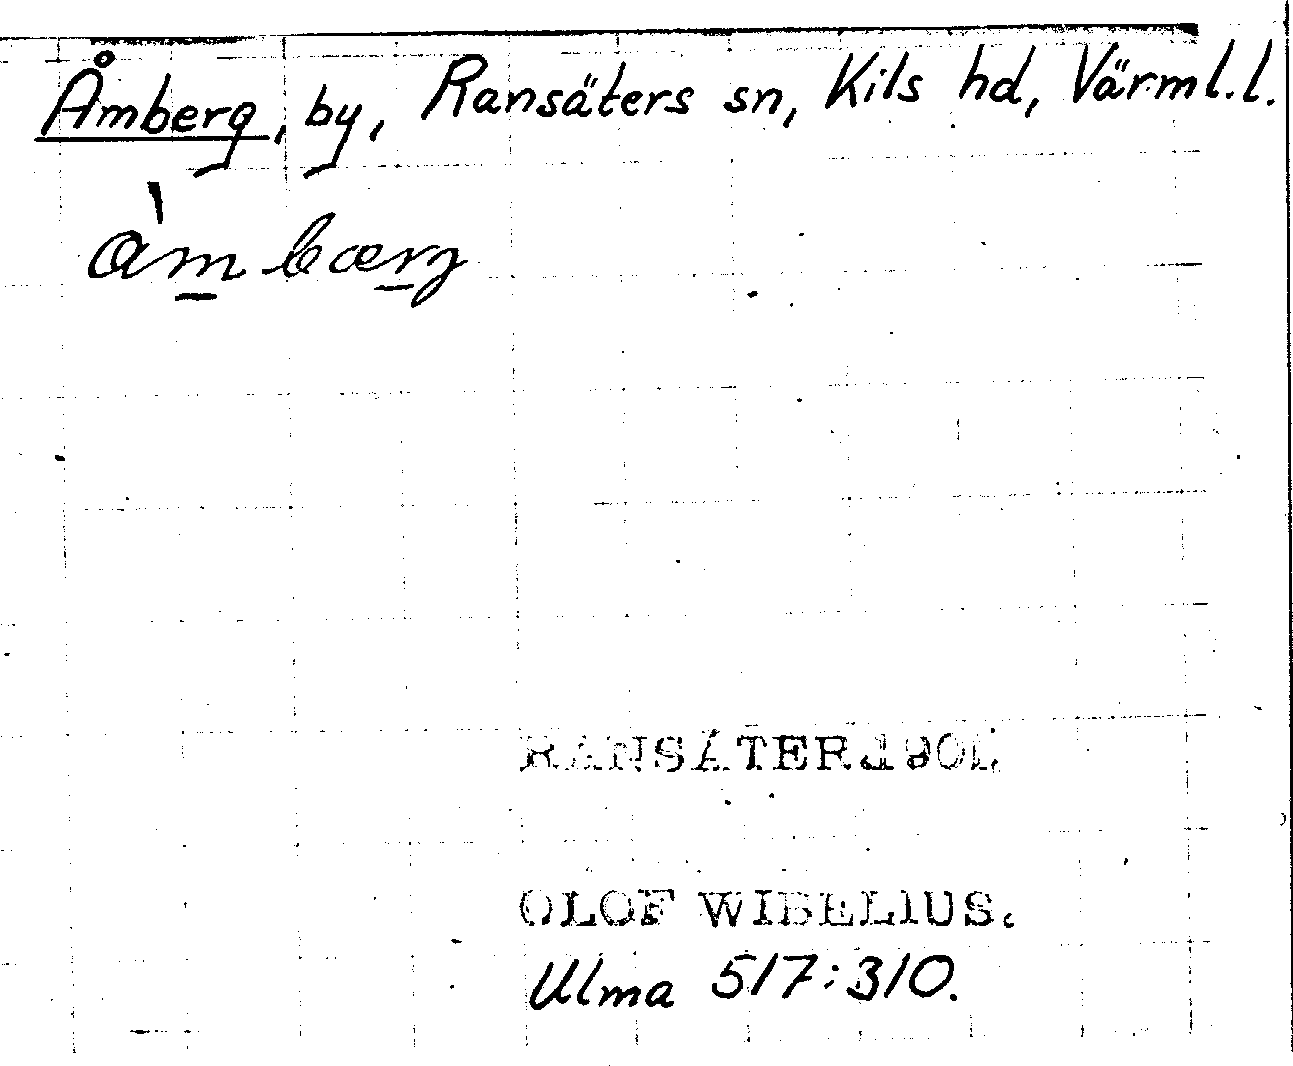 Åmberg, by, Ransäters sn, Kils hd, Värml.l.
àm bærg
RANSÄTER 190
OLOF WIBELIUS.
Ulma 517:310.